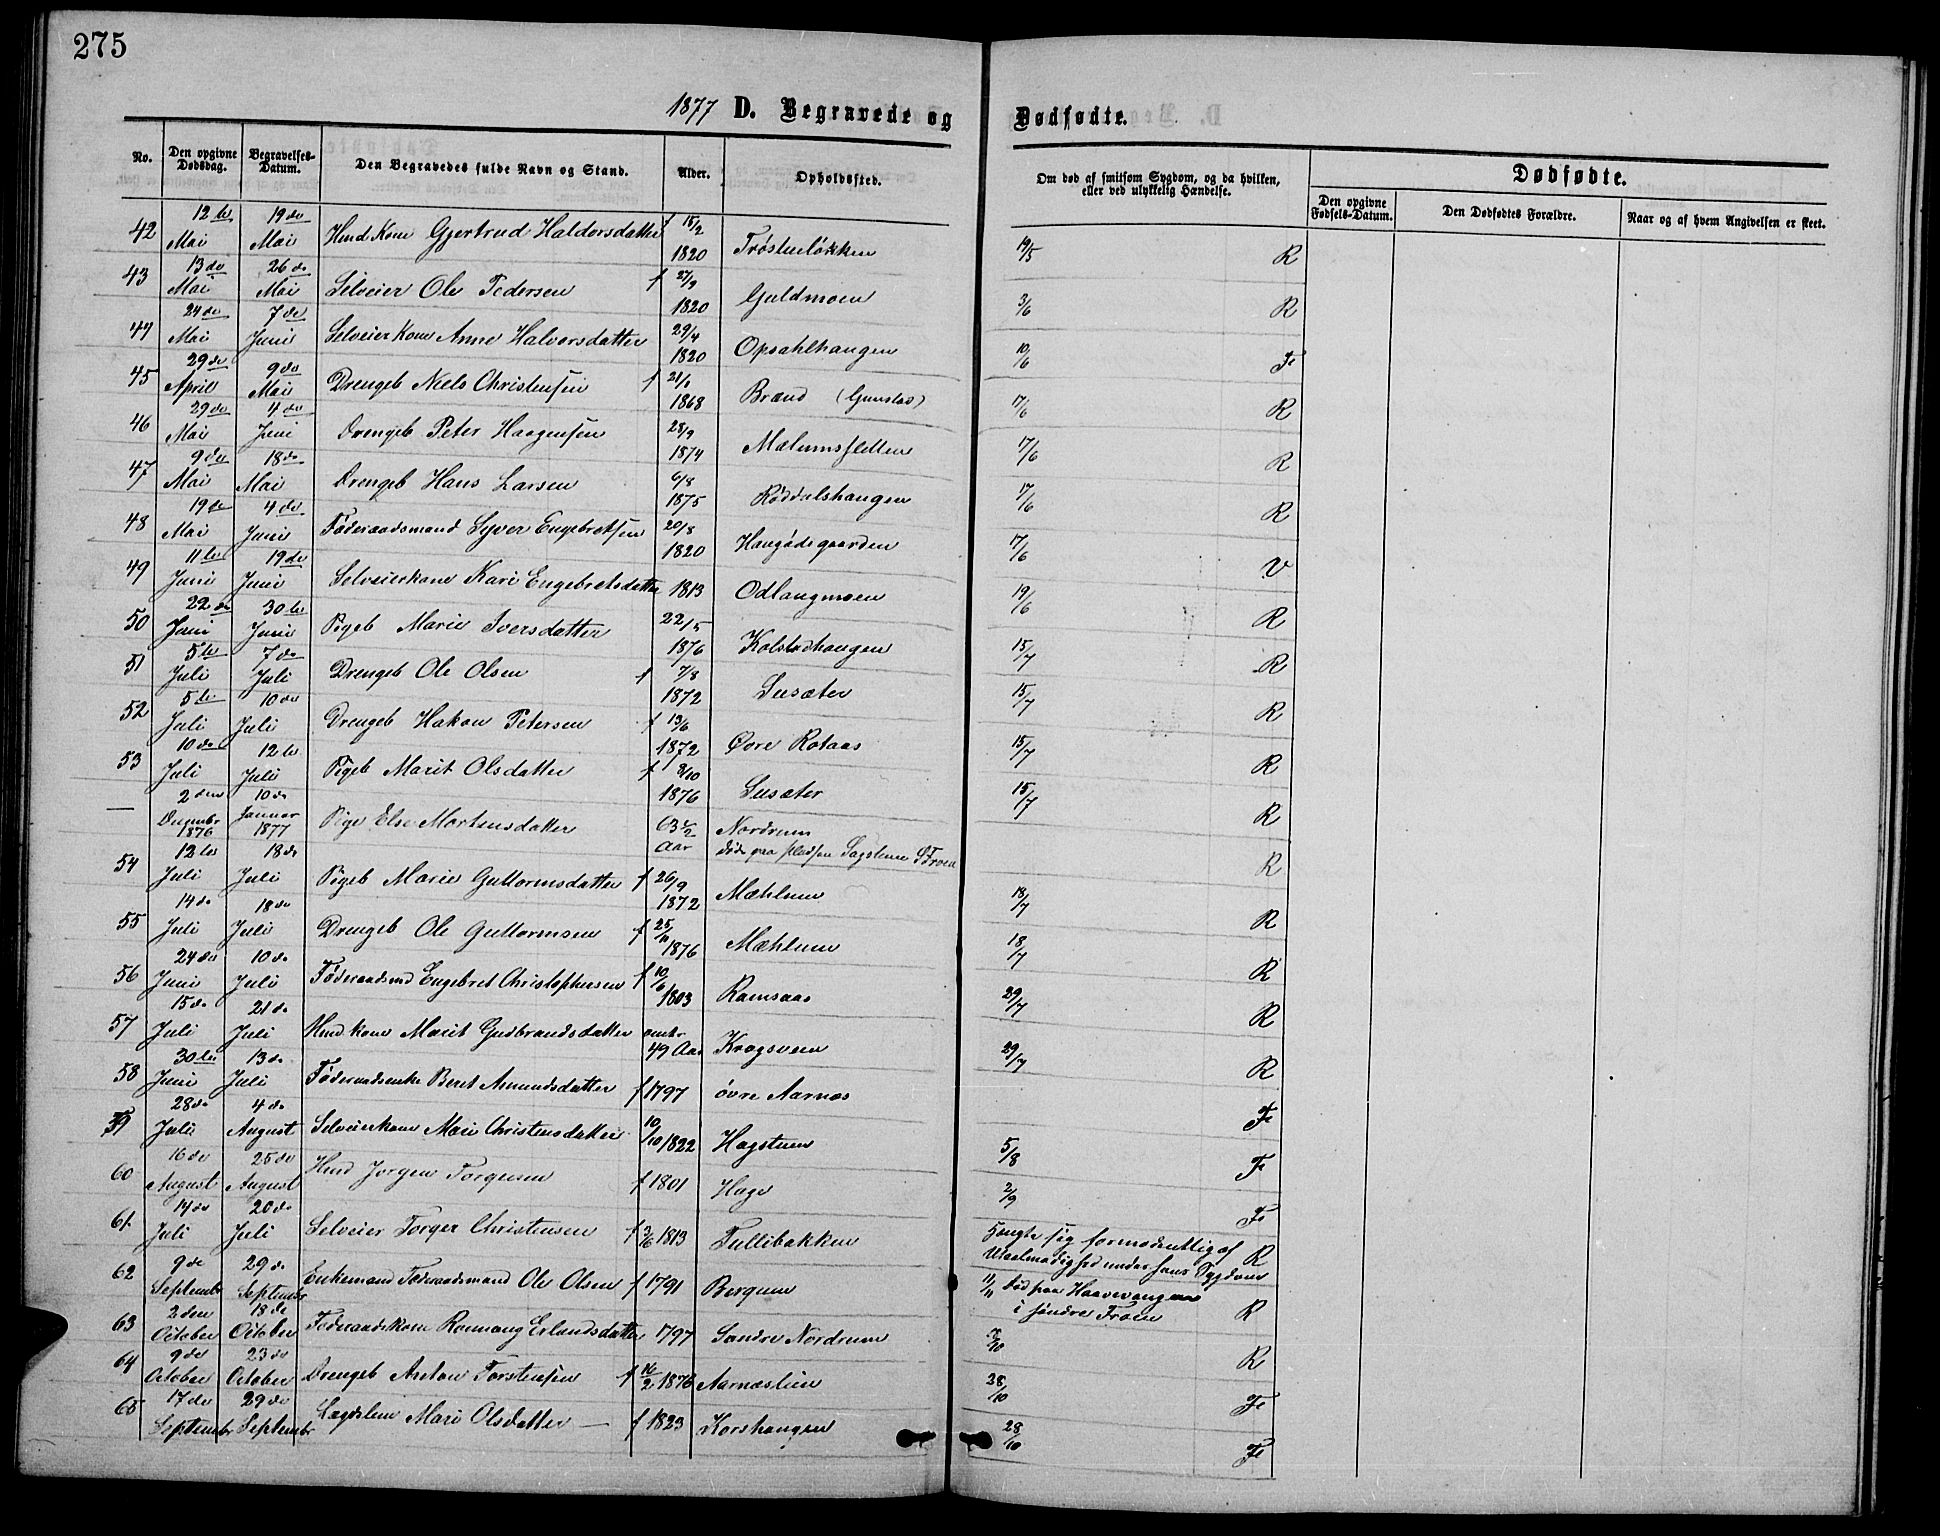 275
1877 D. Begravede og Dødfødte.
No. Den opgivne Dødsdag. Begravelses-Datum. Den Begravedes fulde Navn og Stand. Alder. Opholdssted. Om død af smitsom Sygdom, og da hvilken, eller ved ulykkelig Hændelse. Dødfødte.
Den opgivne Fødsels-Datum. Den Dødfødtes Forældre. Naar og af hvem Angivelsen er skeet.
42 12te Mai 19de Mai Hmd Kone Gjertrud Haldorsdatter f 15/2 1820 Trøstueløkken 19/5 R
43 13de Mai 26de Mai Selveier Ole Pedersen f 27/9 1820 Guldmoen 3/6 R
44 24de Mai 7de Juni Selveier Kone Anne Halvorsdatter 29/4 1820 Opsahlhaugen 10/6 F
45 29de April 9de Mai Drengeb Niels Christensen f 21/1 1868 Brænd 17/6 R
46 29de Mai 4de Juni Drengeb Peter Haagensen 28/9 1874 Mælumsfletten 17/6 R
47 9de Mai 18de Mai Drengeb Hans Larsen 6/8 1875 Røddalshaugen 17/6 R
48 19de Mai 4de Juni Føderaadsmand Syver Engebretsen 20/8 1820 Haugødegaarden 17/6 V
49 11te Juni 19de Juni Selveierkone Kari Engebretsdatter 1813 Odlaugmoen 19/6 R
50 22de Juni 30te Juni Pigeb Marie Iversdatter 22/5 1876 Kolstadhaugen 15/7 R
51 5te Juli 7de Juli Drengeb Ole Olsen f 7/8 1872 Susæter 15/7 R
52 5te Juli 10de Juli Drengeb Hakon Petersen f 13/6 1872 Øvre Rotaas 15/7 R
53 10de Juli 12te Juli Pigeb Marit Olsdatter f 9/10 1876 Susæter 15/7 R
— 2den December 1876 10de Januar 1877 Pige Else Mortensdatter 63 1/2 Aar Nordrum
død paa pladsen Sagstuen S Froen R
54 12te Juli 18de Juli Pigeb Marie Guttormsdatter f 26/9 1872 Mæhlum 18/7 R
55 14de Juli 18de Juli Drengeb Ole Guttormsen f 25/11 1876 Mæhlum 18/7 R
56 24de Juni 10de Juli Føderaadsmd Engebret Christophersen f 10/6 1803 Ramsaas 29/7 R
57 15de Juli 21de Juli Hmd. kone Marit Gudbrandsdatter omtr 49 Aar Kragsveen 29/7 R
58 30te Juni 13de Juli Føderaadsenke Beret Amundsdatter f 1797 øvre Aarnæs F
59 28de Juli 4de August Selveierkone Mari Christensdatter 10/10 1822 Hagstuen 5/8 F
60 16de August 25de August Hmd Jorgen Torgersen f 1801 Hage 2/9 F
61 14de Juli 20de Juli Selveier Torger Christensen f 3/6 1813 Tullibakken Hængte sig formodentlig af R
under hans Sygdom
62 9de September 29de September Enkemand Føderaadsmand Ole Olsen f 1791 Bergum 11/11 død paa Haavevangen
i søndre Froen R
63 2den October 18de October Føderaadskone Rønnaug Erlandsdatter 1797 Søndre Nordrum 7/10 R
64 9de October 23de October Drengeb Anton Torstensen f 16/2 1876 Aarnæslien 28/10 F
65 17de September 29de September Lægdslem Mari Olsdatter — f 1823 Korshaugen 28/10 F